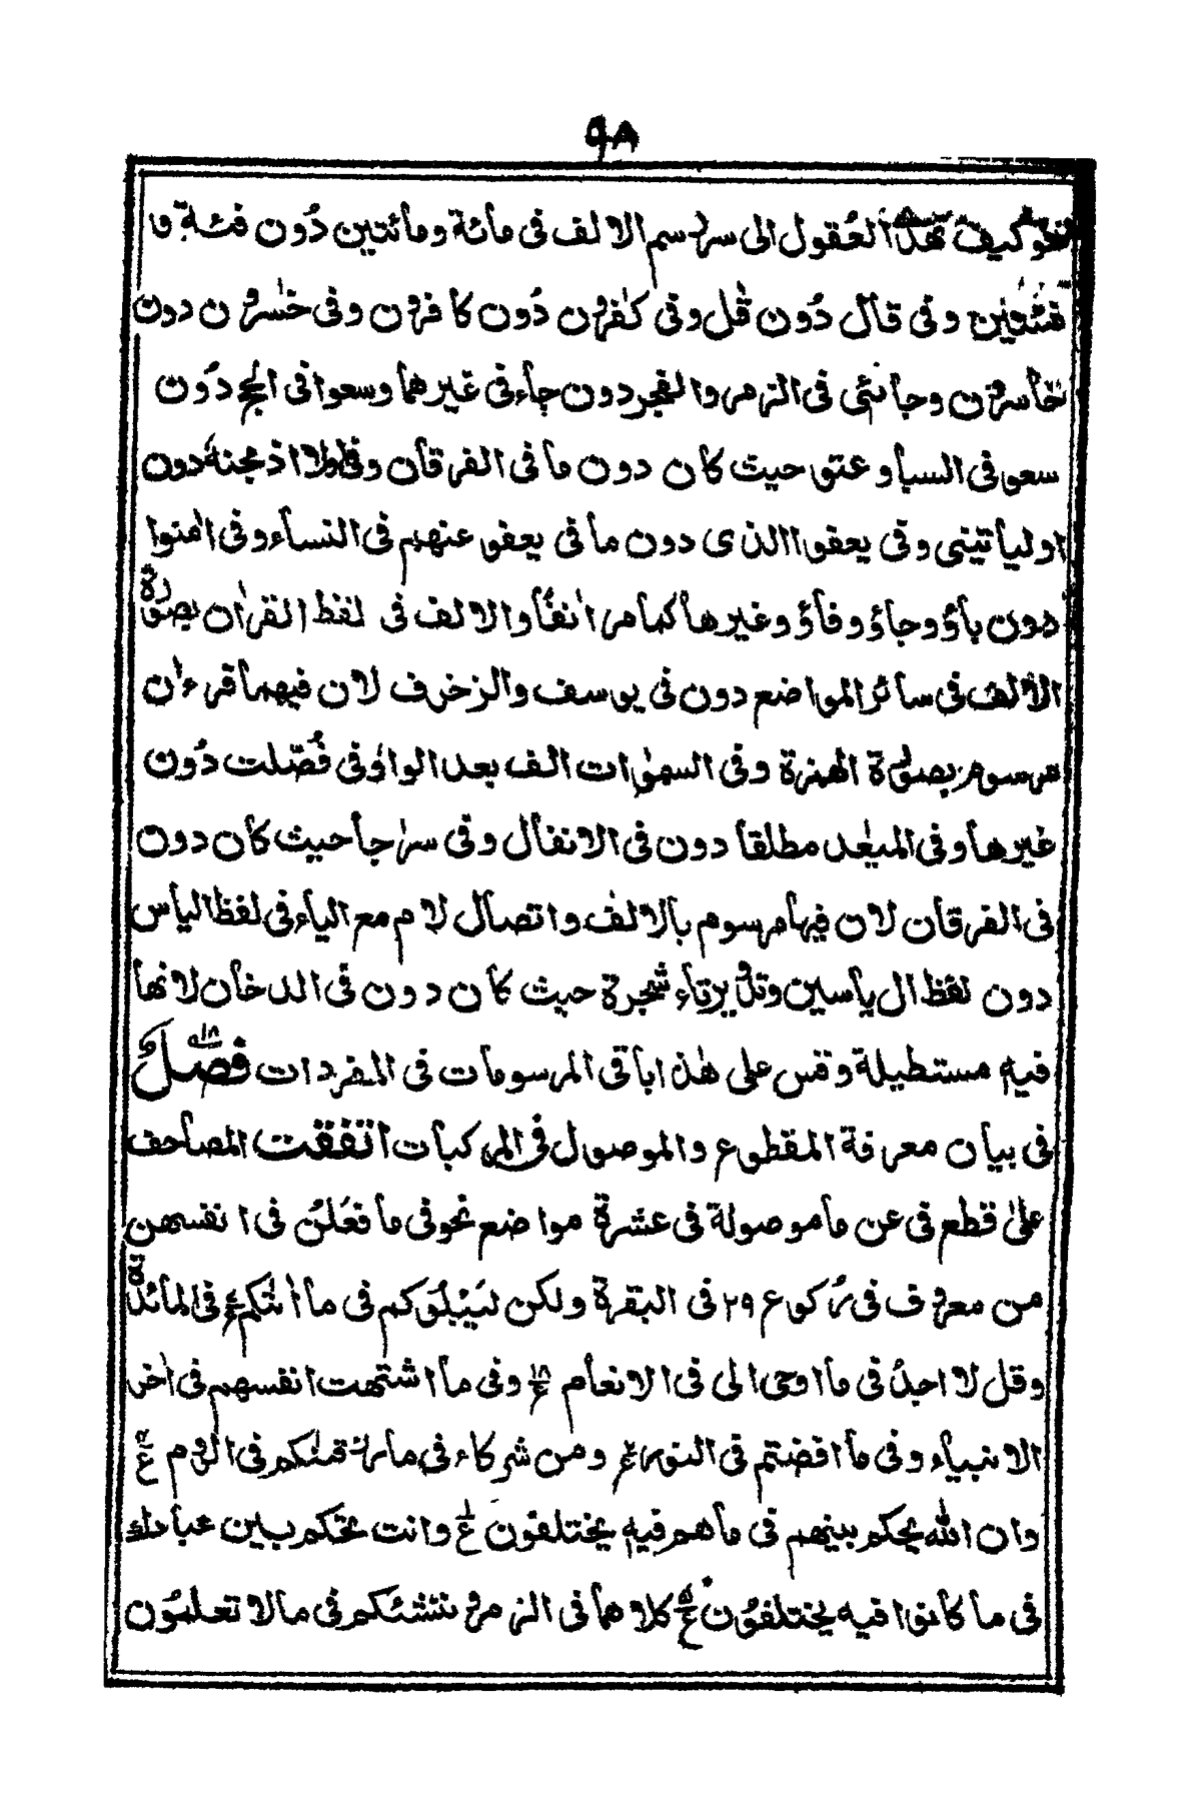 ٩٨
نحو كيف تهدا العُقول الى سرّ رسم الالف فى مائة ومائتين دُون فئة و
فئتين وفى قال دُون قٰل وفى كٰفرون دُون كافرون وفى خٰسرون دون
خاسرون وجائئ فى الزمر والفجر دون جاء فى غيرهما وسعوا فى الحج دُون
سعو فى السبا وعتو حيث كان دون ما فى الفرقان وفى اولا اذبحنه دون
او ليأتينى وفى يعفوا الذى دون ما فى يعفو عنهم فى النساء وفى اٰمنوا
دون باؤ وجاؤ وفاؤ وغيرها كما مر اٰنفًا والالف فى لفظ القراٰن بصورة
الالف فى سائر المواضع دون فى يوسف والزخرف لان فيهما قرءٰن
مرسوم بصورة الهمزة وفى السمٰوات الف بعد الواو فى فُصّلت دُون
غيرها وفى الميعٰد مطلقا دون فى الانفال وفى سرٰجا حيث كان دون
فى الفرقان لان فيها مرسوم بالالف واتصال لام مع الياء فى لفظ الياس
دون لفظ ال ياسين وتدوير تاء شجرة حيث كان دون فى الدخان لانها
فيه مستطيلة وقس على هٰذا باقى المرسومات فى المفردات فصل ١٨
فى بيان معرفة المقطوع والموصول فى المركبات اتفقت المصاحف
على قطع فى عن ما موصولة فى عشرة مواضع نحو فى ما فعَلن فى انفسهن
من معروف فى ركوع ٢٩ فى البقرة ولكن ليَبْلُوَكم فى ما اٰتٰكم ع فى المائدة
وقل لا اجدُ فى ما اوحى الى فى الانعام ع١٨ وفى ما اشتهت انفسهم فى اٰخر
الانبياء وفى ما افضتم فى النور ع ومن شركاء فى ما رزقنٰكم فى الروم ع
وان الله يحكم بينهم فى ما هم فيه يختلفون ع١ وانت تحكم بين عبادك
فى ما كانوا فيه يختلفون ع٥ كلاهما فى الزمر وننشئكم فى ما لا تعلمون